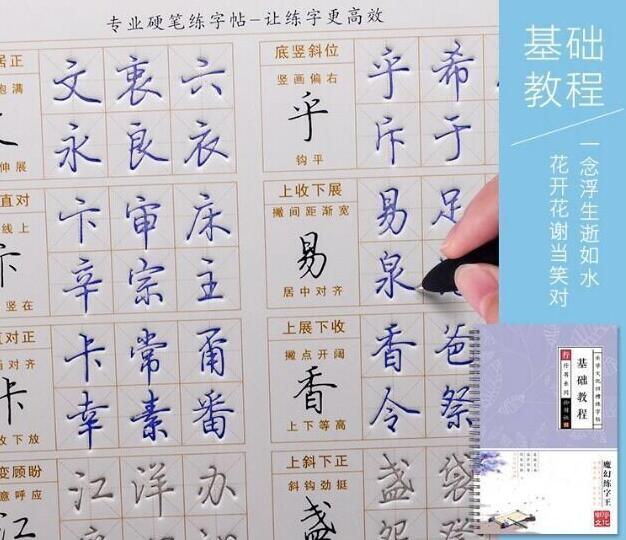 专业硬笔练字帖-让练字更高效
居正
饱满
伸展
文衷六
永良衣
底竖斜位
竖画偏右
乎
钩平
乎希
斥于
直对
线上
卞
竖在
卞审床
辛宗主
上收下展
撇间距渐宽
易
居中对齐
易足
泉
直对正
对齐
卡
收下放
卡常甬
幸素番
上展下收
撇点开阔
香
上下等高
香爸
令祭
变顾盼
意呼应
江
江洋办
上斜下正
斜钩劲挺
盏
盏袋
怨登
基础
教程
一念浮生逝如水
花开花谢当笑对
行
基础教程
魔幻练字王